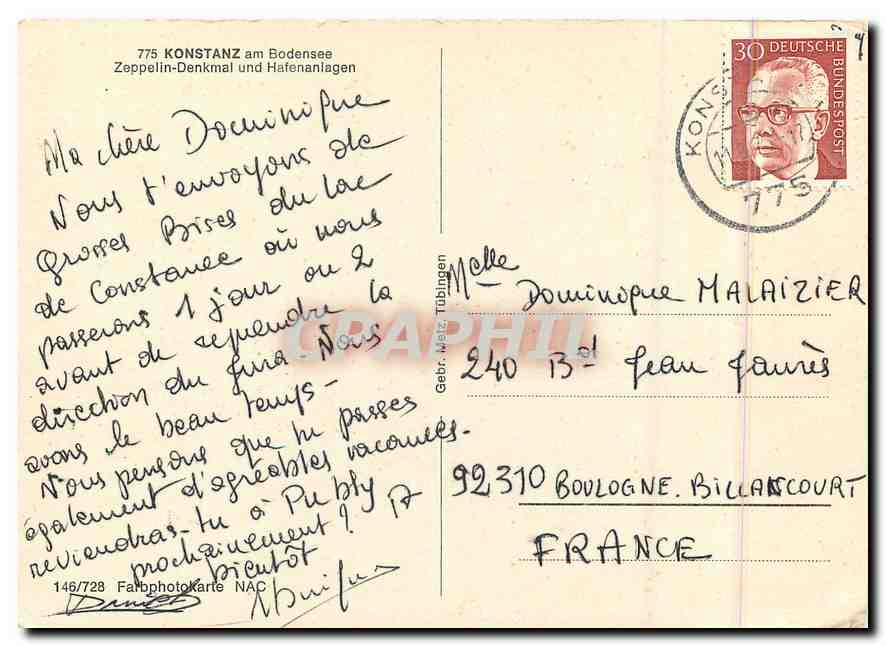 775 KONSTANZ am Bodensee
Zeppelin-Denkmal und Hafenanlagen
Ma chère Dominique
Nous t'envoyons de
grosses Bises du lac
de Constance où nous
passerons 1 jour ou 2
avant de reprendre la
direction du Jura. Nous
avons le beau temps -
Nous pensons que tu passes
également d'agréables vacances.
reviendras-tu à
prochainement ? A
bientôt
146/728 Farbphotokarte NAC
Gebr. Metz, Tübingen
30 DEUTSCHE
BUNDESPOST
775
Melle Dominique MALAIZIER
240 Bd Jean Jaurès
92310 BOULOGNE. BILLANCOURT
FRANCE
CPAPHIL